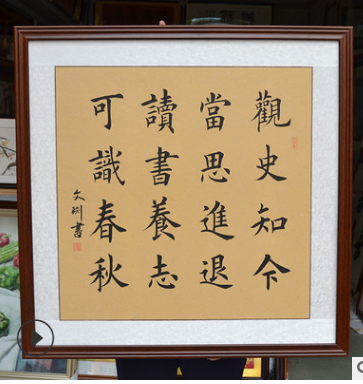 觀史知今
當思進退
讀書養志
可識春秋
文㓰書